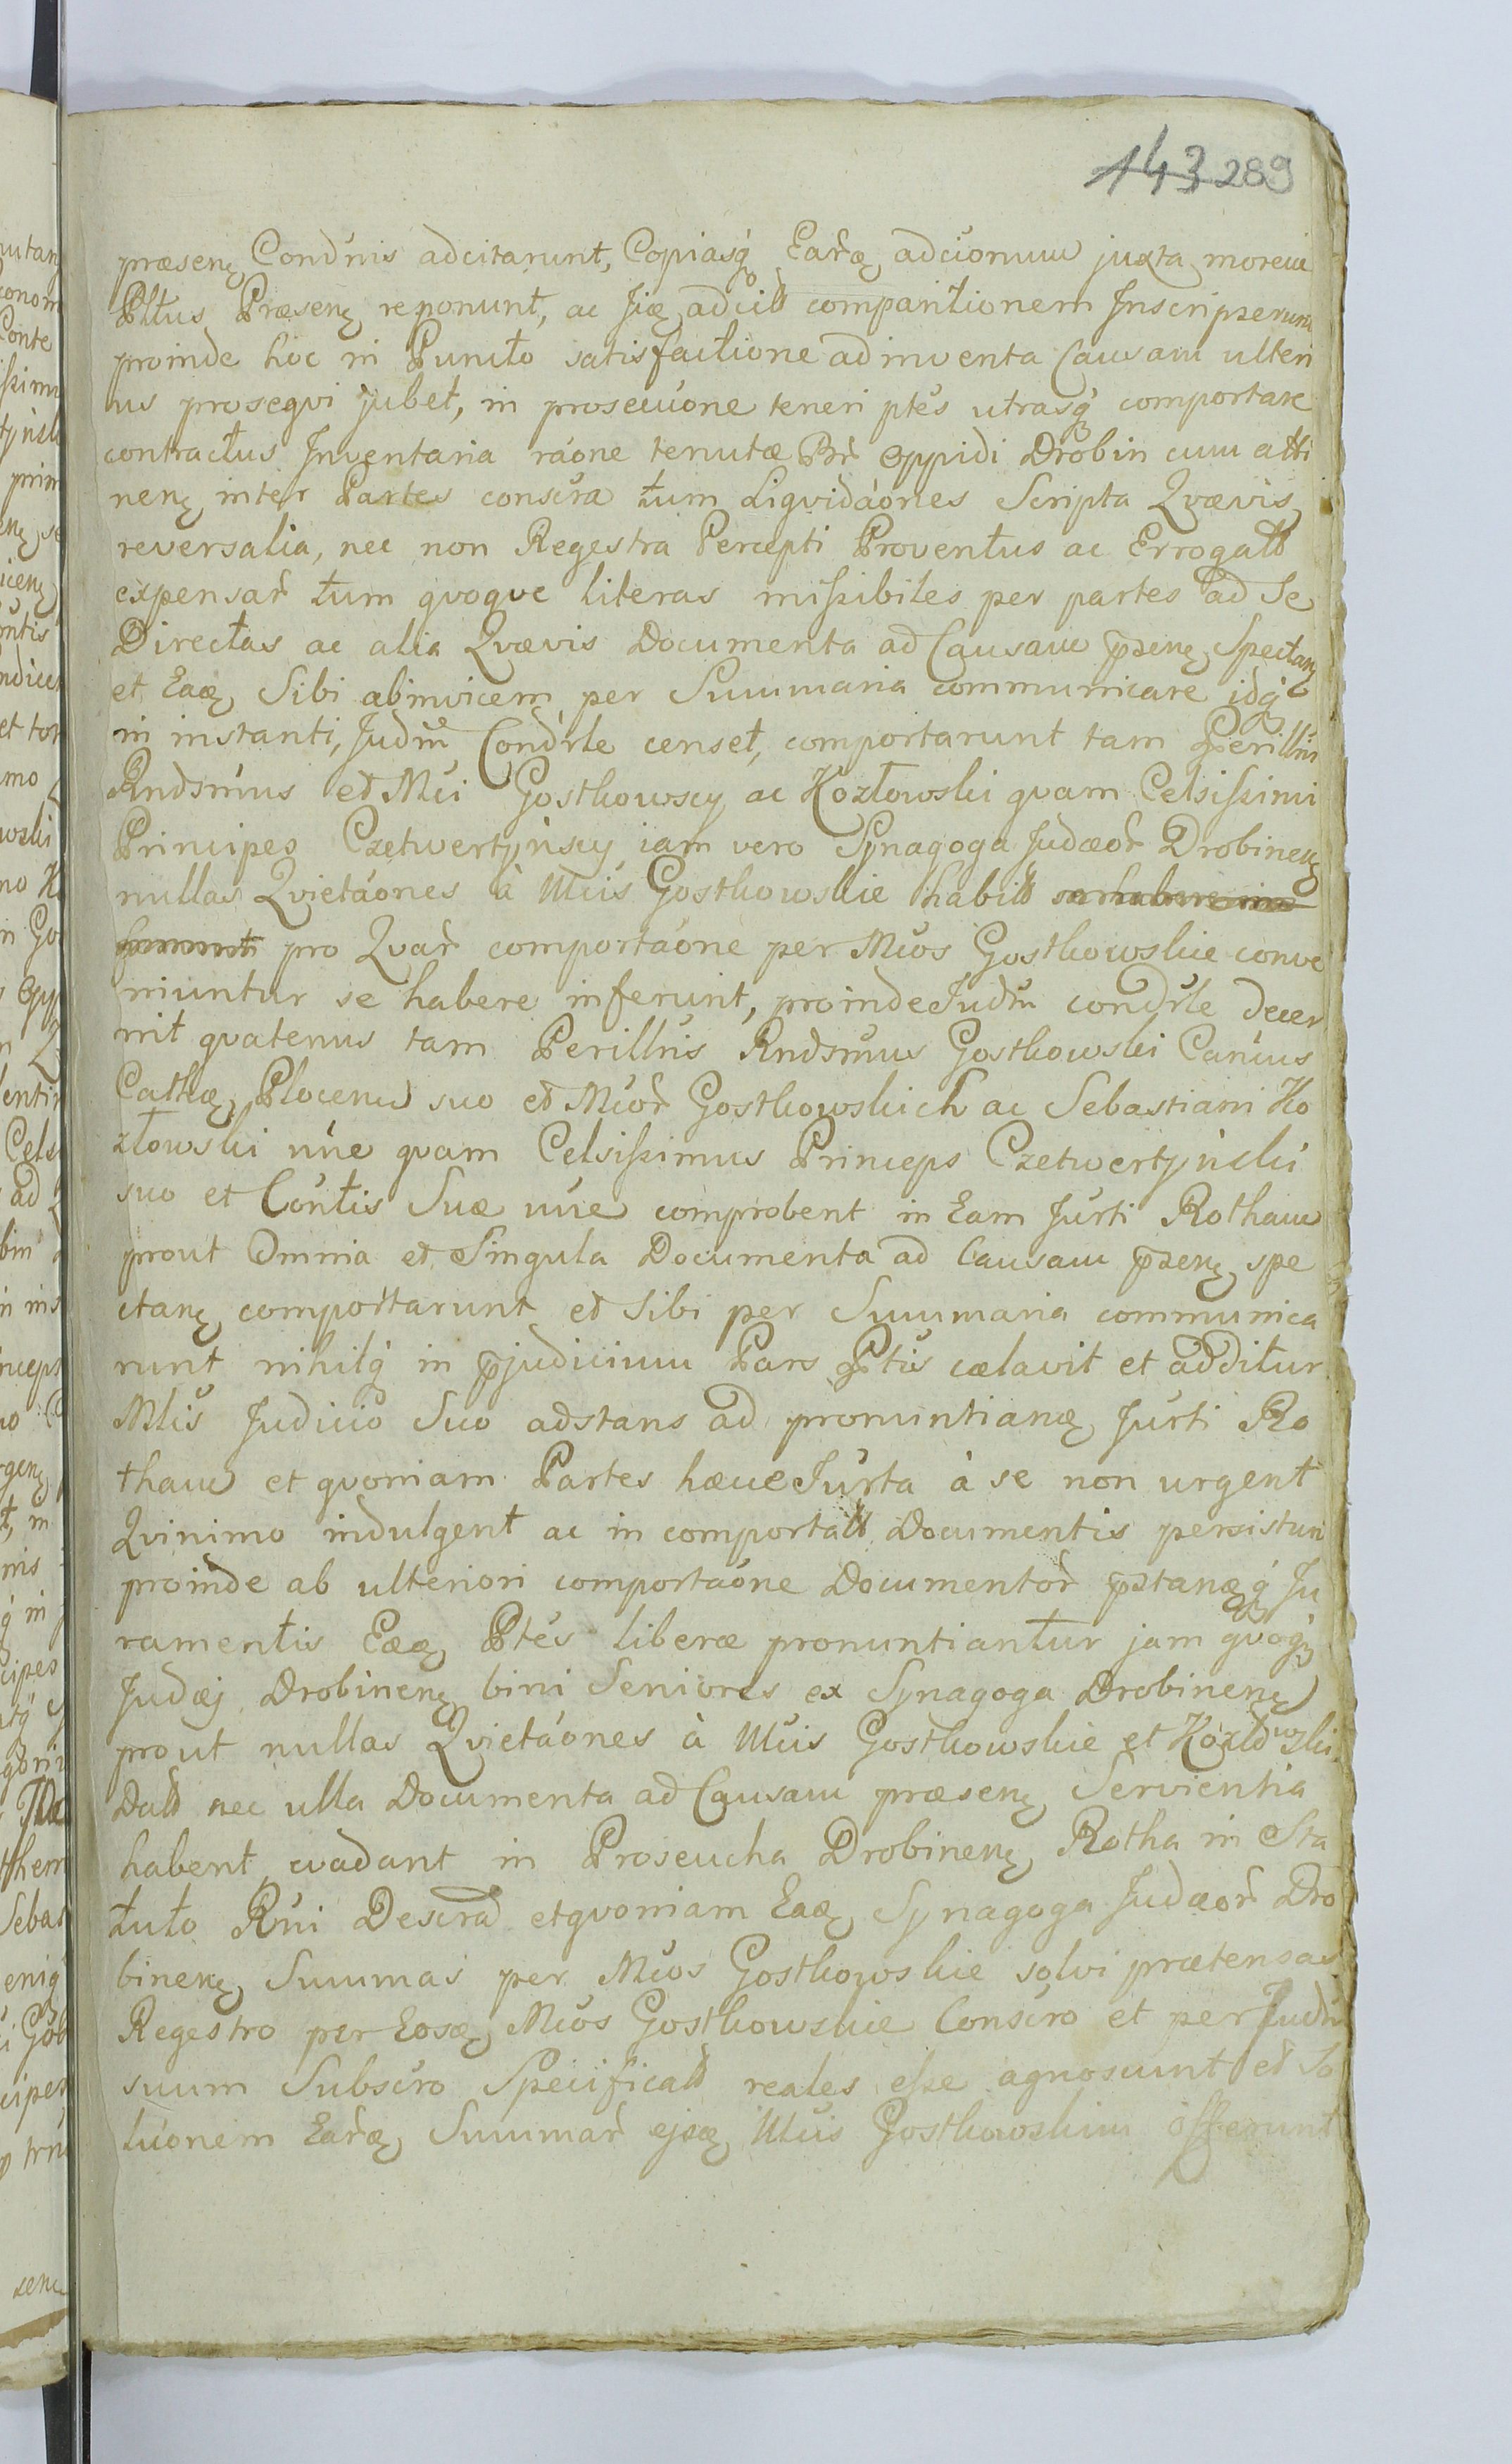 143 289
præsenę Condnis adcitarunt, Copiasq́ Earꝛą adcionum juxta morem
Pltus Præsenę reponunt, ac Jię adcitt comparitionem Inscripserunt
proinde hoc in Puncto satisfactione adinventa Causam ulteri
us proseqvi jubet, in prosecúone teneri ptés utrasq́ comportare
contractus Inventaria ráone tenutæ Bń Oppidi Drobin cum atti
nenę inter Partes conscra tum Liqvidáones Scripta Qvævis
reversalia, nec non Regestra Percepti Proventus ac Errogatt
expensař tum qvoqve literas missibiles per partes ad Se
Directas ac alia Qvævis Documenta ad Causam p̄senę Spectanę
et Eaą Sibi abinvicem per Summaria communicare idq́
in instanti, Judm̄ Condrle censet, comportarunt tam Perillris
Rndsmus et Mci Gostkowscy ac Kozłowski qvam Celsissimi
Principes Czetwertyńscy iam vero Synagoga Judæoř Drobinenę
nullas Qvietáones à Mcis Gostkowskie habitt se habere in
ferunt pro Qvař comportáone per Mcos Gostkowskie conve
niuntur se habere inferunt, proinde Judm̄ condrle decer
nit qvatenus tam Perillris Rndsmus Gostkowski Canćus
Cathą Plocenę suo et Mcoř Gostkowskich ac Sebastiani Ko
złowski nńe qvam Celsissimus Princeps Czetwertyński
suo et Cońtis Suæ nńe comprobent in Eam Jurti Rotham
prout Omnia et Singula Documenta ad Causam p̄senę spe
ctanę comportarunt et Sibi per Summaria communica
runt nihilq́ in p̄judicium Pars Ptis cælavit et additur
Mlis Judicio Suo adstans ad pronuntianą Jurti Ro
tham et qvoniam Partes hæce Jurta à se non urgent
Qvinimo indulgent ac in comportatt Documentis persistunt
proinde ab ulteriori comportáone Documentoř p̄stanąq́ Ju
ramentis Eæą Ptés liberæ pronuntiantur jam qvoq́
Judæj Drobinenę bini Seniores ex Synagoga Drobinenę
prout nullas Qvietáones à Mcis Gostkowskie et Kozłowski
Datt nec ulla Documenta ad Causam præsenę Servientia
habent evadant in Proseucha Drobinenę Rotha in Sta
tuto Rni Descra et qvoniam Eaą Synagoga Judæoř Dro
binenę Summas per Mcos Gostkowskie solvi prætensas
Regestro per Eosą Mcos Gostkowskie Conscro et per Judm̄
suum Subscro Specificatt reales esse agnoscunt et So
lúonem Earꝛą Summař ejsą Mcis Gostkowskim offerunt